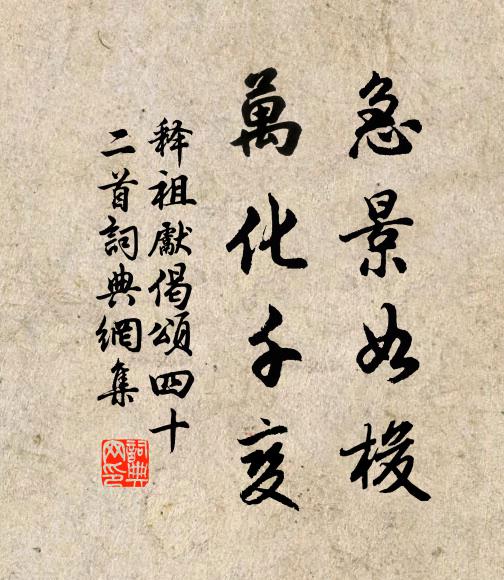 急景如梭
萬化千变
释祖獻偈頌四十
二首詞典網集
詞典網印